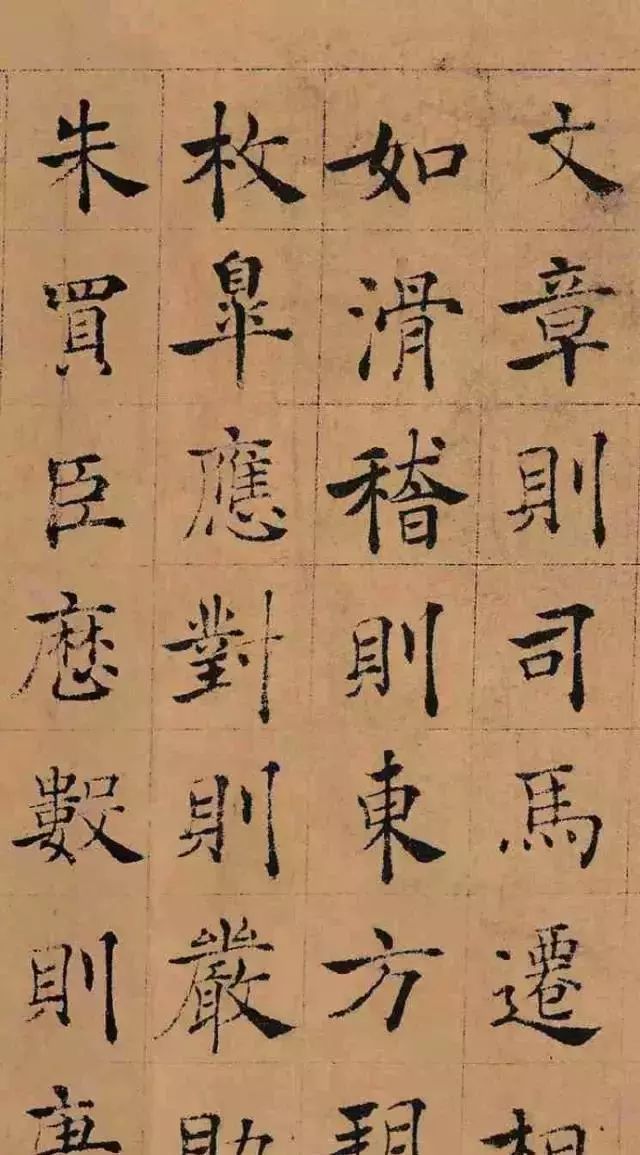 文章則司馬遷相
如滑稽則東方朔
枚皐應對則嚴助
朱買臣曆數則唐